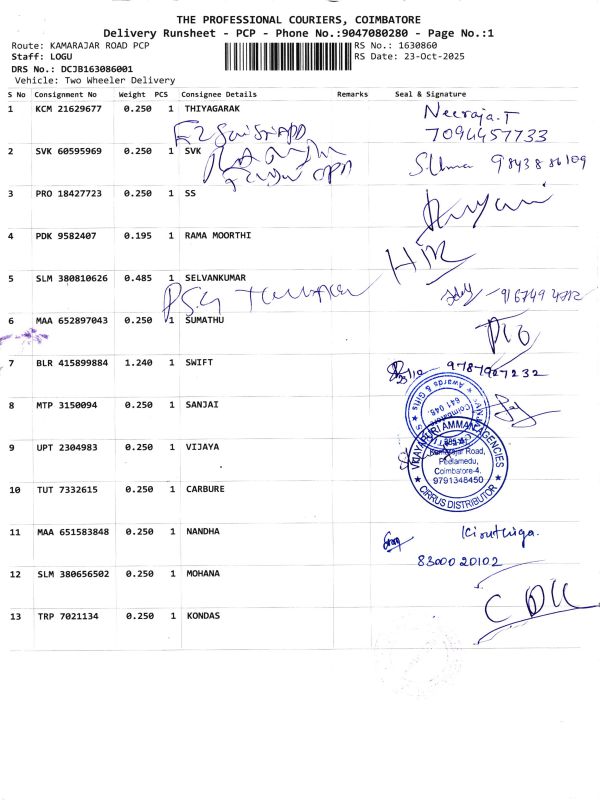 THE PROFESSIONAL COURIERS, COIMBATORE
Delivery Runsheet - PCP - Phone No.:9047080280 - Page No.:1
Route: KAMARAJAR ROAD PCP RS No.: 1630860
Staff: LOGU RS Date: 23-Oct-2025
DRS No.: DCJB163086001
Vehicle: Two Wheeler Delivery
S No Consignment No Weight PCS Consignee Details Remarks Seal & Signature
1 KCM 21629677 0.250 1 THIYAGARAK Neeraja.T
7094457733
2 SVK 60595969 0.250 1 SVK S.Uma 9843886109
3 PRO 18427723 0.250 1 SS
4 PDK 9582407 0.195 1 RAMA MOORTHI
5 SLM 380810626 0.485 1 SELVANKUMAR
PSG
6 MAA 652897043 0.250 1 SUMATHU
7 BLR 415899884 1.240 1 SWIFT 9787907232
8 MTP 3150094 0.250 1 SANJAI
Awards & Gifts
Coimbatore
641 048
9 UPT 2304983 0.250 1 VIJAYA
VIJAYAPURI AMMAN AGENCIES
Kamarajar Road,
Peelamedu,
Coimbatore-4.
9791348450
CIRRUS DISTRIBUTOR
10 TUT 7332615 0.250 1 CARBURE
11 MAA 651583848 0.250 1 NANDHA Kiruthiga.
8300020102
12 SLM 380656502 0.250 1 MOHANA
13 TRP 7021134 0.250 1 KONDAS